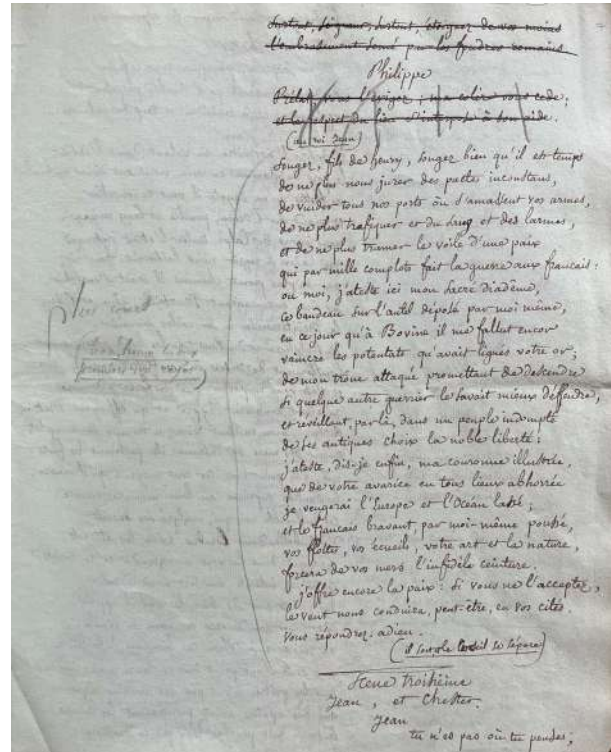 Surtout, Seigneur, Surtout, éteignez de vos mains
l'embrasement semé par les foudres romains
Philippe
Prélat, vous l'exigez ; ma colère vous cede ;
et le respect du lieu s'interpose à son aide.
(au roi Jean)
Songez, fils de henry, songez bien qu'il est temps
de ne plus nous jurer des pactes inconstans,
de vuider tous nos ports où s'amassent vos armes,
de ne plus trafiquer et du sang et des larmes,
et de ne plus tramer le voile d'une paix
qui par mille complots fait la guerre aux français :
ou moi, j'ateste ici mon sacré diadême,
ce bandeau sur l'autel déposé par moi même,
en ce jour qu'à Bovine il me fallut encor
vaincre les potentats qu'avait ligués votre or ;
de mon trône attaqué promettant de descendre
si quelque autre guerrier le savait mieux déffendre,
et réveillant, par là, dans un peuple indompté
de ses antiques choix la noble liberté :
j'ateste, dis-je enfin, ma couronne illustrée,
que de votre avarice en tous lieux abhorrée
je vengerai l'Europe et l'Océan lassé ;
et le français bravant, par moi-même poussé,
vos flottes, vos écueils, votre art et la nature,
forcera de vos mers l'infidèle ceinture.
j'offre encore la paix : si vous ne l'acceptez,
le vent nous conduira, peut-être, en vos cités.
vous répondrez : adieu.
(il sort le Conseil se sépare)
Scene troisième
Jean, et Chester.
Jean
tu n'es pas où tu penses,